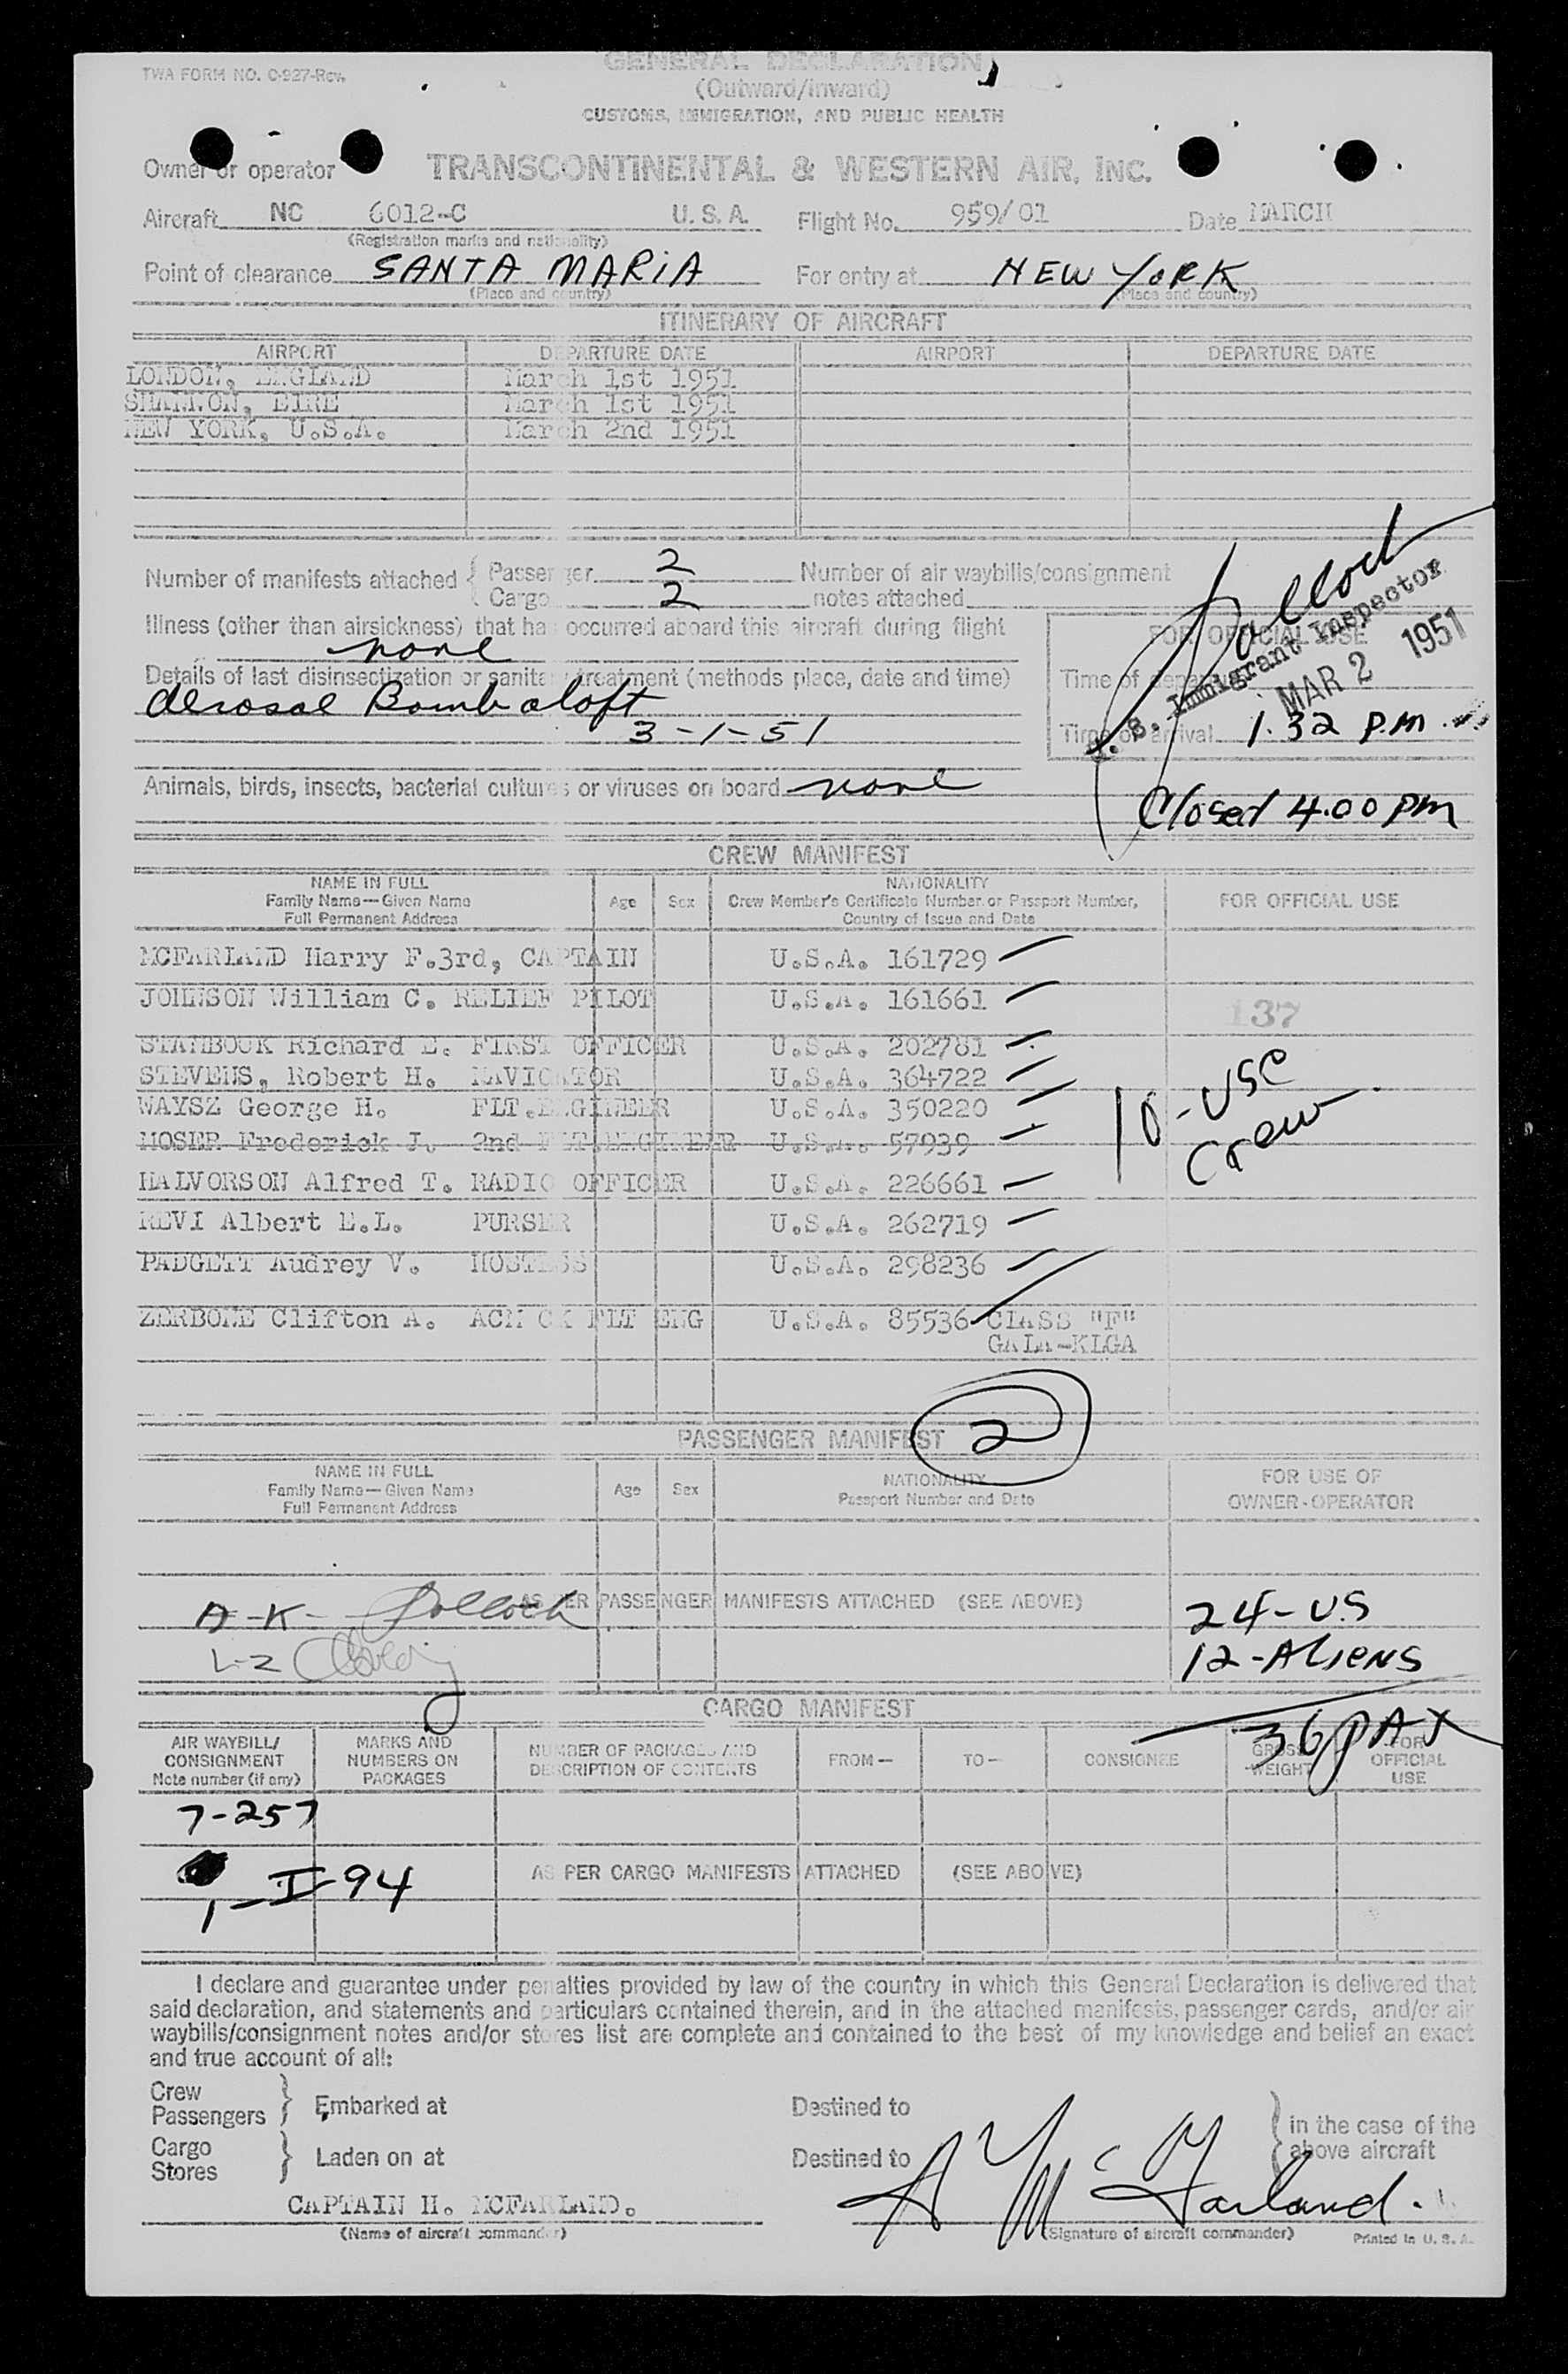 TWA FORM NO. C-927-Rev.
GENERAL DECLARATION
(Outward/Inward)
CUSTOMS, IMMIGRATION, AND PUBLIC HEALTH
Owner or operator TRANSCONTINENTAL & WESTERN AIR, INC.
Aircraft NC 6012-C U.S.A. Flight No. 959/01 Date MARCH
(Registration marks and nationality)
Point of clearance SANTA MARIA For entry at NEW YORK
(Place and country) (Place and country)
ITINERARY OF AIRCRAFT
AIRPORT DEPARTURE DATE AIRPORT DEPARTURE DATE
LONDON, ENGLAND March 1st 1951
SHANNON, EIRE March 1st 1951
NEW YORK, U.S.A. March 2nd 1951
Number of manifests attached { Passenger 2 Number of air waybills/consignment
Cargo 2 notes attached
Illness (other than airsickness) that has occurred aboard this aircraft during flight
none
FOR OFFICIAL USE
Details of last disinsectization or sanitary treatment (methods place, date and time)
Aerosol Bomb aloft
3-1-51
Pollock
U. S. Immigrant Inspector
MAR 2 1951
Time of departure
Time of arrival 1.32 P.M.
Animals, birds, insects, bacterial cultures or viruses on board none
Closed 4.00 pm
CREW MANIFEST
NAME IN FULL Age Sex NATIONALITY FOR OFFICIAL USE
Family Name—Given Name Crew Member's Certificate Number or Passport Number,
Full Permanent Address Country of Issue and Date
MCFARLAND Harry F.3rd, CAPTAIN U.S.A. 161729
JOHNSON William C. RELIEF PILOT U.S.A. 161661
137
STAMBOUK Richard E. FIRST OFFICER U.S.A. 202781
STEVENS, Robert H. NAVIGATOR U.S.A. 364722
WAYSZ George H. FLT.ENGINEER U.S.A. 350220
10-USC
Crew
MOSER Frederick J. 2nd FLT.ENGINEER U.S.A. 57939
HALVORSON Alfred T. RADIO OFFICER U.S.A. 226661
REVI Albert E.L. PURSER U.S.A. 262719
PADGETT Audrey V. HOSTESS U.S.A. 298236
ZERBONE Clifton A. ACM CK FLT ENG U.S.A. 85536 CLASS "F"
GALA-KLGA
PASSENGER MANIFEST 2
NAME IN FULL Age Sex NATIONALITY FOR USE OF
Family Name—Given Name Passport Number and Date OWNER-OPERATOR
Full Permanent Address
A-K- Pollock AS PER PASSENGER MANIFESTS ATTACHED (SEE ABOVE) 24-US
L-Z 12-ALIENS
36 PAX
CARGO MANIFEST
AIR WAYBILL/ MARKS AND NUMBER OF PACKAGES AND FROM— TO— CONSIGNEE GROSS FOR
CONSIGNMENT NUMBERS ON DESCRIPTION OF CONTENTS WEIGHT OFFICIAL
Note number (if any) PACKAGES USE
7-257
1-I-94 AS PER CARGO MANIFESTS ATTACHED (SEE ABOVE)
I declare and guarantee under penalties provided by law of the country in which this General Declaration is delivered that
said declaration, and statements and particulars contained therein, and in the attached manifests, passenger cards, and/or air
waybills/consignment notes and/or stores list are complete and contained to the best of my knowledge and belief an exact
and true account of all:
Crew
Passengers } Embarked at Destined to } in the case of the
Cargo
Stores } Laden on at Destined to above aircraft
CAPTAIN H. MCFARLAND. H McFarland.
(Name of aircraft commander) (Signature of aircraft commander) Printed in U. S. A.